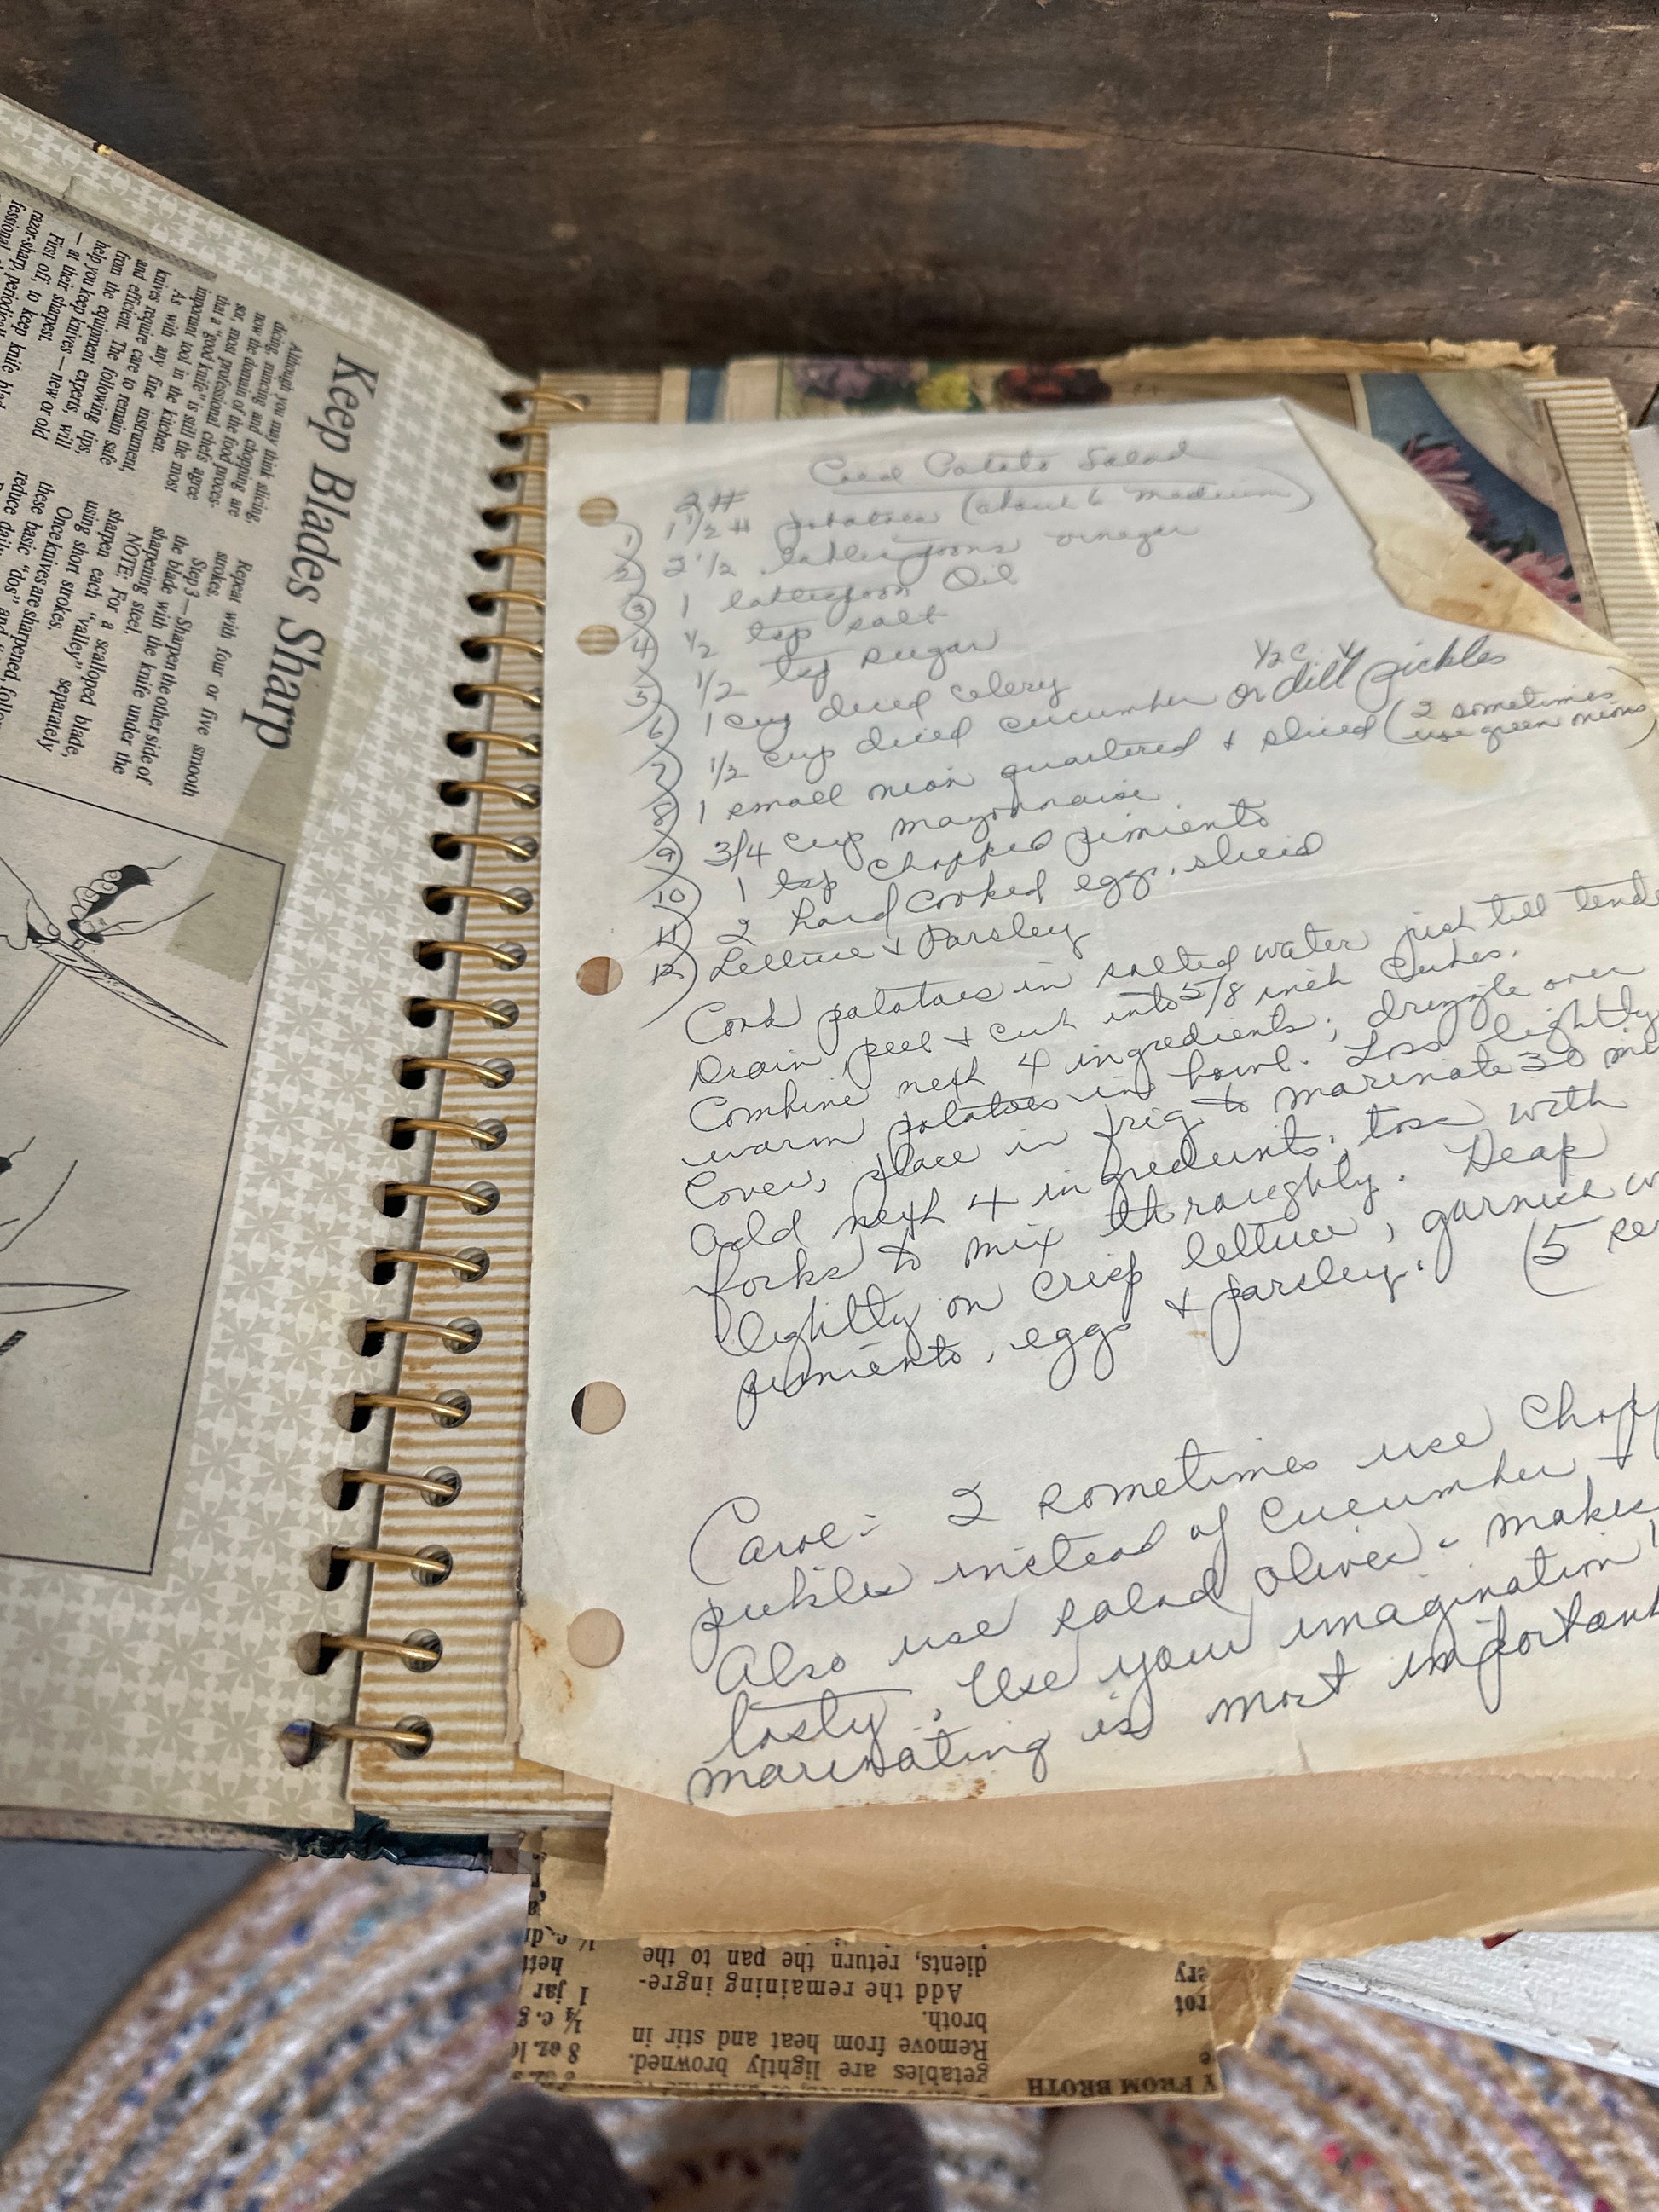 Keep Blades Sharp
Although you may think slicing,
dicing, mincing and chopping are
now the domain of the food proces-
sor, most professional chefs agree
that a "good knife" is still the most
important tool in the kitchen.
As with any fine instrument,
knives require care to remain safe
and efficient. The following tips,
from the equipment experts, will
help you keep knives — new or old
— at their sharpest.
First off, to keep knife
razor-sharp, periodically
fessional
Repeat with four or five smooth
strokes.
Step 3 — Sharpen the other side of
the blade with the knife under the
sharpening steel.
NOTE: For a scalloped blade,
sharpen each "valley" separately
using short strokes.
Once knives are sharpened, follow
these basic "dos" and
reduce daily
Potato Salad
2#
1) 1 1/2 # potatoes (about 6 medium)
2) 2 1/2 tablespoons vinegar
3) 1 tablespoon Oil
4) 1/2 tsp salt
5) 1/2 tsp sugar
6) 1 cup diced celery
1/2 c
7) 1/2 cup diced cucumber or dill pickles
8) 1 small onion quartered + sliced (I sometimes
use green onions)
9) 3/4 cup mayonnaise
10) 1 tsp chopped pimiento
11) 2 hard cooked eggs, sliced
12) Lettuce + Parsley
Cook potatoes in salted water just till
Drain peel + cut into 5/8 inch cubes.
Combine next 4 ingredients; drizzle over
warm potatoes in bowl. Toss lightly
Cover, place in frig to marinate 30
Add next 4 ingredients, toss with
forks to mix thoroughly. Heap
lightly on crisp lettuce, garnish
pimiento, eggs + parsley. (5
I sometimes use
pickles instead of cucumber +
Also use salad olives - makes
tasty. Use your imagination!
marinating is most important
dients, return the pan to the
Add the remaining ingre-
broth.
Remove from heat and stir in
getables are lightly browned.
1 jar
8 oz.
Y FROM BROTH